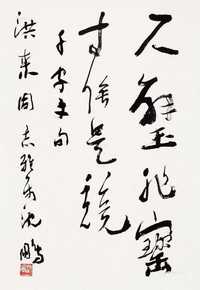 尺璧非宝
寸阴是竞
千字文句
洪来同志雅属沈鹏